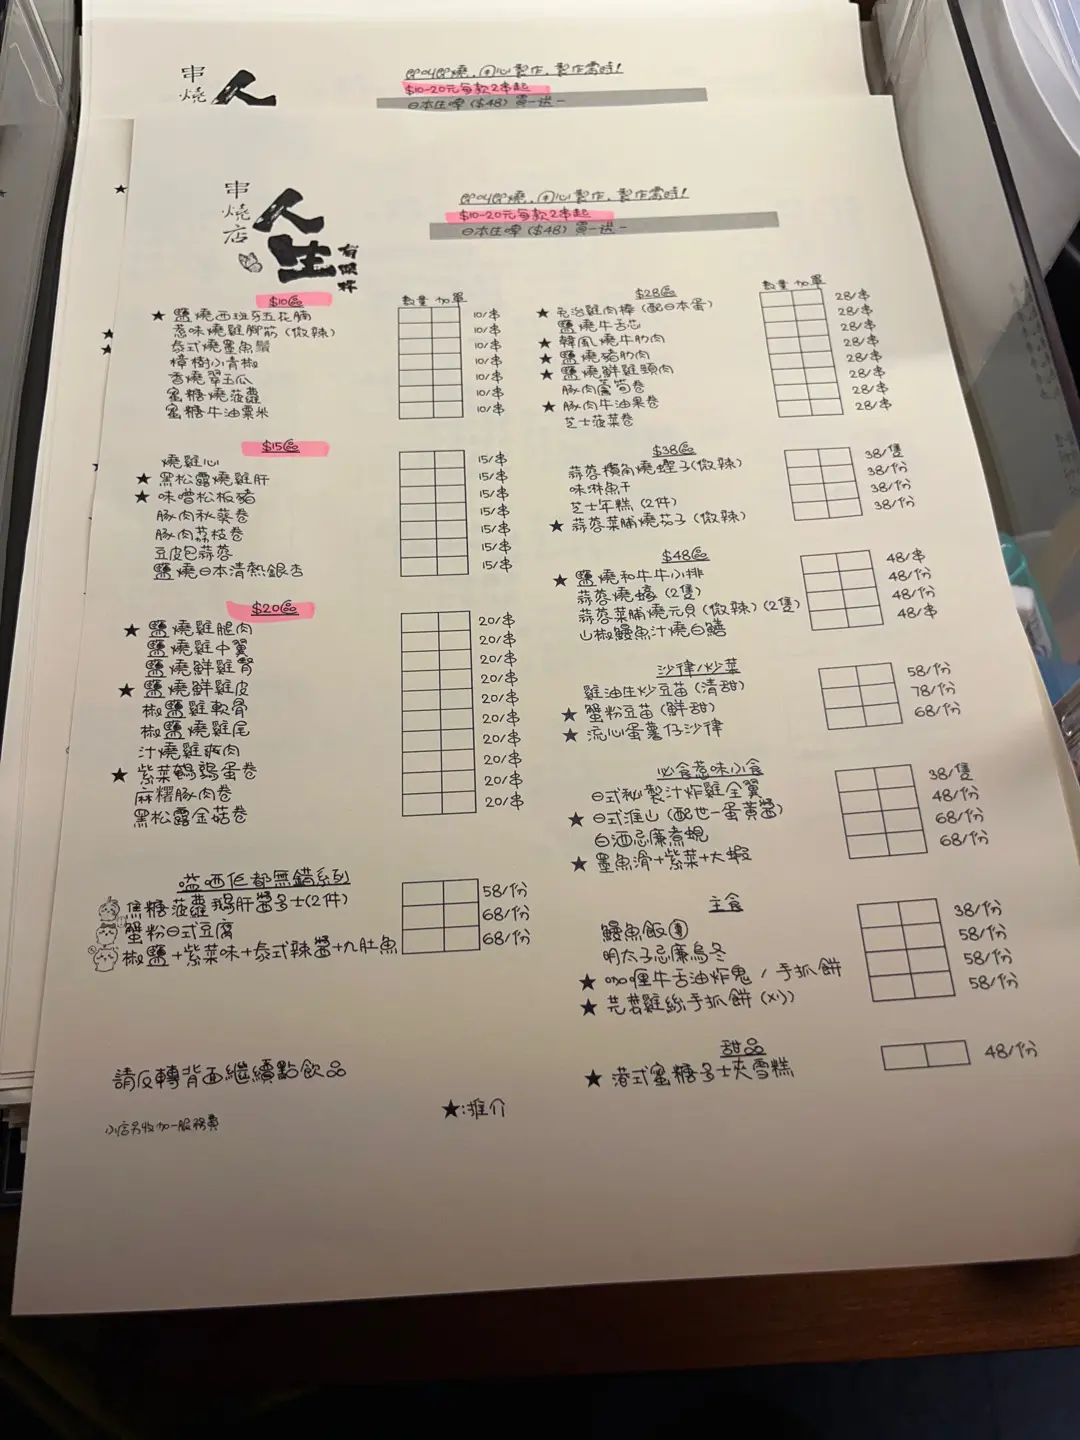 串燒
人
即叫即燒,用心製作,製作需時!
$10-20元每款2串起
日本生啤($48)買一送一
串燒店
人生
有限杯
即叫即燒,用心製作,製作需時!
$10-20元每款2串起
日本生啤($48)買一送一
$10區
數量 加單
★ 鹽燒西班牙五花腩 10/串
惹味燒雞腳筋(微辣) 10/串
泰式燒墨魚鬚 10/串
樟樹小青椒 10/串
香燒翠玉瓜 10/串
蜜糖燒菠蘿 10/串
蜜糖牛油粟米 10/串
$15區
燒雞心 15/串
★ 黑松露燒雞肝 15/串
★ 味噌松板豬 15/串
豚肉秋葵卷 15/串
豚肉荔枝卷 15/串
豆皮包蒜蓉 15/串
鹽燒日本清熱銀杏 15/串
$20區
★ 鹽燒雞腿肉 20/串
鹽燒雞中翼 20/串
鹽燒鮮雞腎 20/串
★ 鹽燒鮮雞皮 20/串
椒鹽雞軟骨 20/串
椒鹽燒雞尾 20/串
汁燒雞爽肉 20/串
★ 紫菜鵪鶉蛋卷 20/串
麻糬豚肉卷 20/串
黑松露金菇卷 20/串
嗌哂佢都無錯系列
焦糖菠蘿鵝肝醬多士(2件) 58/份
蟹粉日式豆腐 68/份
椒鹽+紫菜味+泰式辣醬+九肚魚 68/份
請反轉背面繼續點飲品
小店另收加一服務費
★:推介
$28區
數量 加單
★ 免治雞肉棒(配日本蛋) 28/串
鹽燒牛舌芯 28/串
★ 韓風燒牛肋肉 28/串
★ 鹽燒豬肋肉 28/串
★ 鹽燒鮮雞頸肉 28/串
豚肉蘆筍卷 28/串
★ 豚肉牛油果卷 28/串
芝士菠菜卷 28/串
$38區
蒜蓉欖角燒蟶子(微辣) 38/隻
味淋魚干 38/份
芝士年糕(2件) 38/份
★ 蒜蓉菜脯燒茄子(微辣) 38/份
$48區
★ 鹽燒和牛牛小排 48/串
蒜蓉燒蠔(2隻) 48/份
蒜蓉菜脯燒元貝(微辣)(2隻) 48/份
山椒鰻魚汁燒白鱔 48/串
沙律/炒菜
雞油生炒豆苗(清甜) 58/份
★ 蟹粉豆苗(鮮甜) 78/份
★ 流心蛋薯仔沙律 68/份
必食惹味小食
日式秘製汁炸雞全翼 38/隻
★ 日式淮山(配世一蛋黃醬) 48/份
白酒忌廉煮蜆 68/份
★ 墨魚滑+紫菜+大蝦 68/份
主食
鰻魚飯 38/份
明太子忌廉烏冬 58/份
★ 咖喱牛舌油炸鬼/手抓餅 58/份
★ 芫荽雞絲手抓餅(刈) 58/份
甜品
★ 港式蜜糖多士夾雪糕 48/份